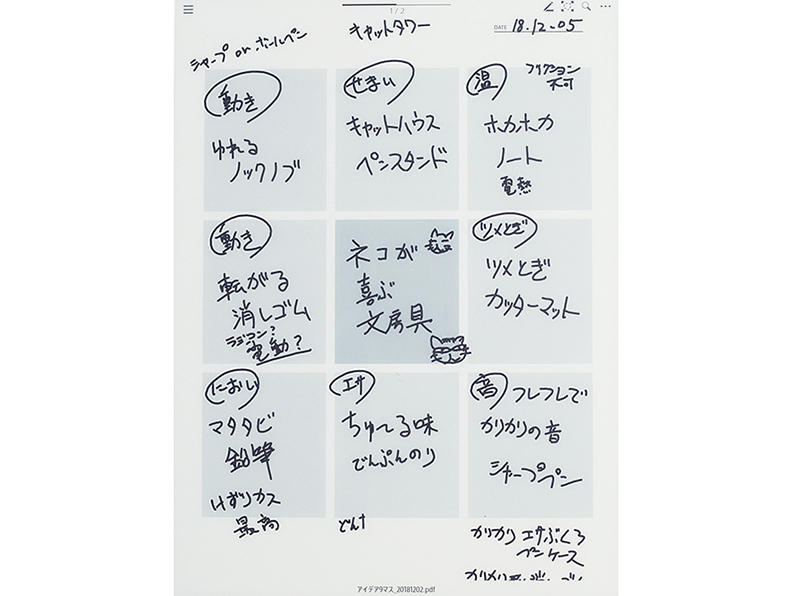 1 / 2
DATE 18.12.05
キャットタワー
シャープ or ボールペン
動き
ゆれる
ノックノブ
せまい
キャットハウス
ペンスタンド
温
フリクション
不可
ホカホカ
ノート
電熱
動き
転がる
消しゴム
ラジコン?
電動?
ネコが
喜ぶ
文房具
ツメとぎ
ツメとぎ
カッターマット
におい
マタタビ
鉛筆
けずりカス
最高
エサ
ちゅ~る味
でんぷんのり
音
フレフレで
カリカリの音
シャープペン
カリカリ エサぶくろ
ペンケース
アイデア9マス_20181202.pdf